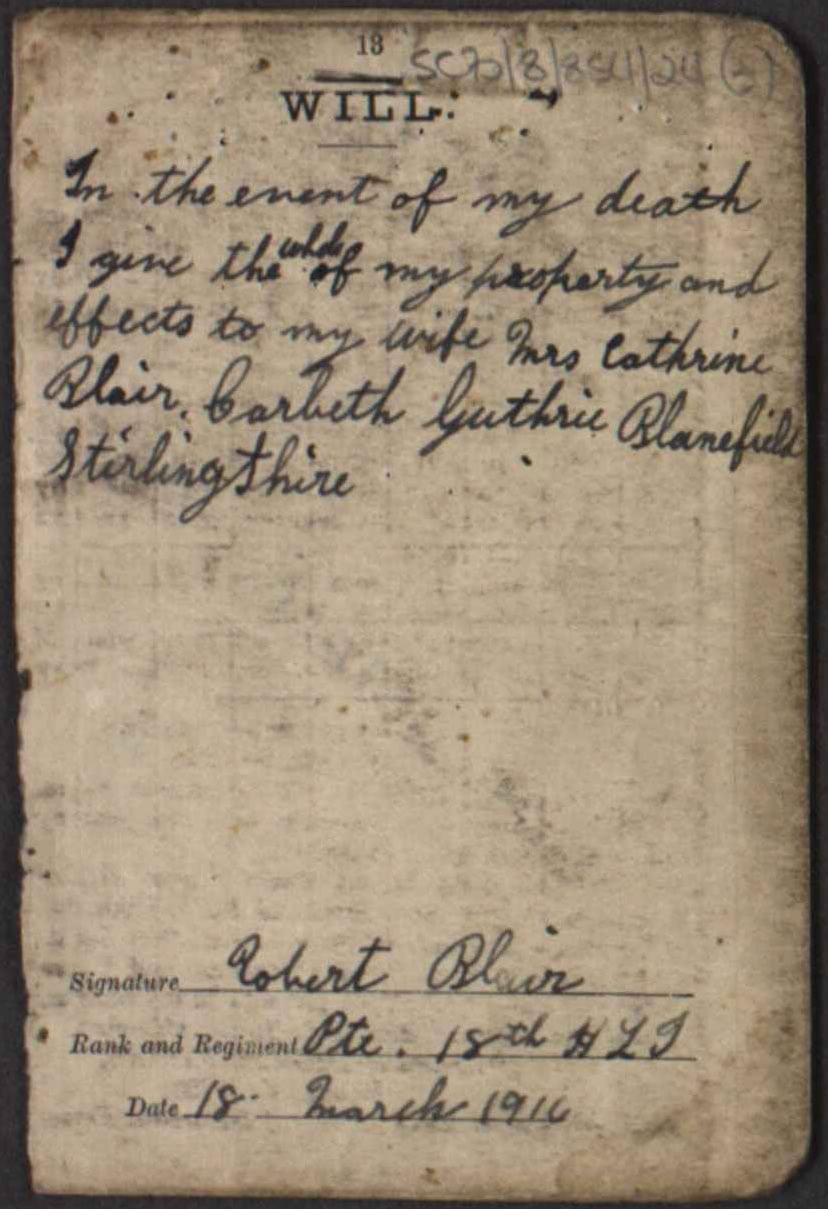 13
SC70/8/854/24 (2)
WILL.
In the event of my death
I give the whole of my property and
effects to my wife Mrs Cathrine
Blair. Carbeth Guthrie Blanefield
Stirlingshire
Signature Robert Blair
Rank and Regiment Pte. 18th H L I
Date 18 March 1916